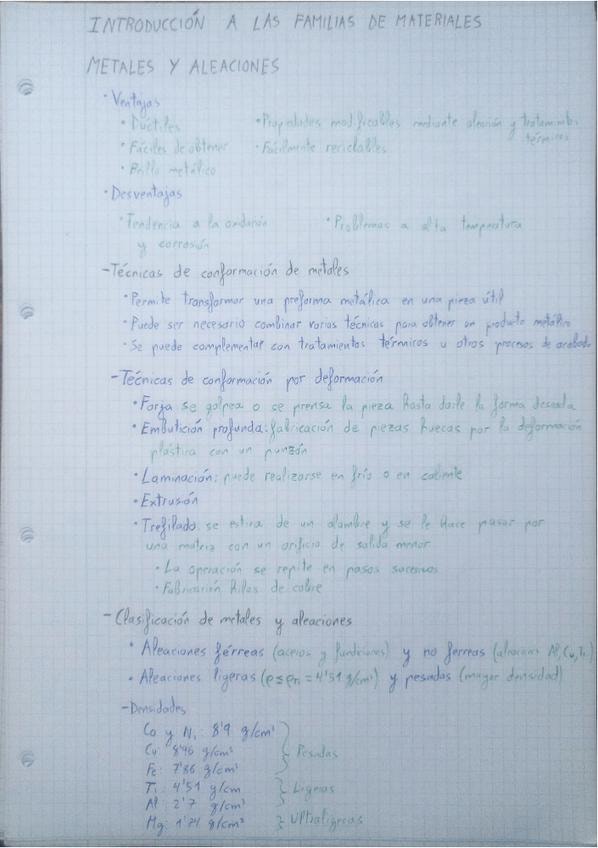 INTRODUCCIÓN A LAS FAMILIAS DE MATERIALES
METALES Y ALEACIONES
• Ventajas
• Dúctiles • Propiedades modificables mediante aleación y tratamientos térmicos
• Fáciles de obtener • Fácilmente reciclables
• Brillo metálico
• Desventajas
• Tendencia a la oxidación • Problemas a alta temperatura
y corrosión
- Técnicas de conformación de metales
• Permite transformar una preforma metálica en una pieza útil
• Puede ser necesario combinar varias técnicas para obtener un producto metálico
• Se puede complementar con tratamientos térmicos u otros procesos de acabado
- Técnicas de conformación por deformación
• Forja se golpea o se prensa la pieza hasta darle la forma deseada
• Embutición profunda: fabricación de piezas huecas por la deformación
plástica con un punzón
• Laminación: puede realizarse en frío o en caliente
• Extrusión
• Trefilado se estira de un alambre y se le hace pasar por
una matriz con un orificio de salida menor
• La operación se repite en pasos sucesivos
• Fabricación hilos de cobre
- Clasificación de metales y aleaciones
• Aleaciones férreas (aceros y fundiciones) y no ferreas (aleaciones Al, Cu, Ti)
• Aleaciones ligeras (ρ≤ρTi = 4'51 g/cm³) y pesadas (mayor densidad)
- Densidades
Co y Ni: 8'9 g/cm³
Cu 8'96 g/cm³ } Pesadas
Fe: 7'86 g/cm³
Ti: 4'51 g/cm } Ligeras
Al: 2'7 g/cm³
Mg: 1'74 g/cm³ } Ultraligeras